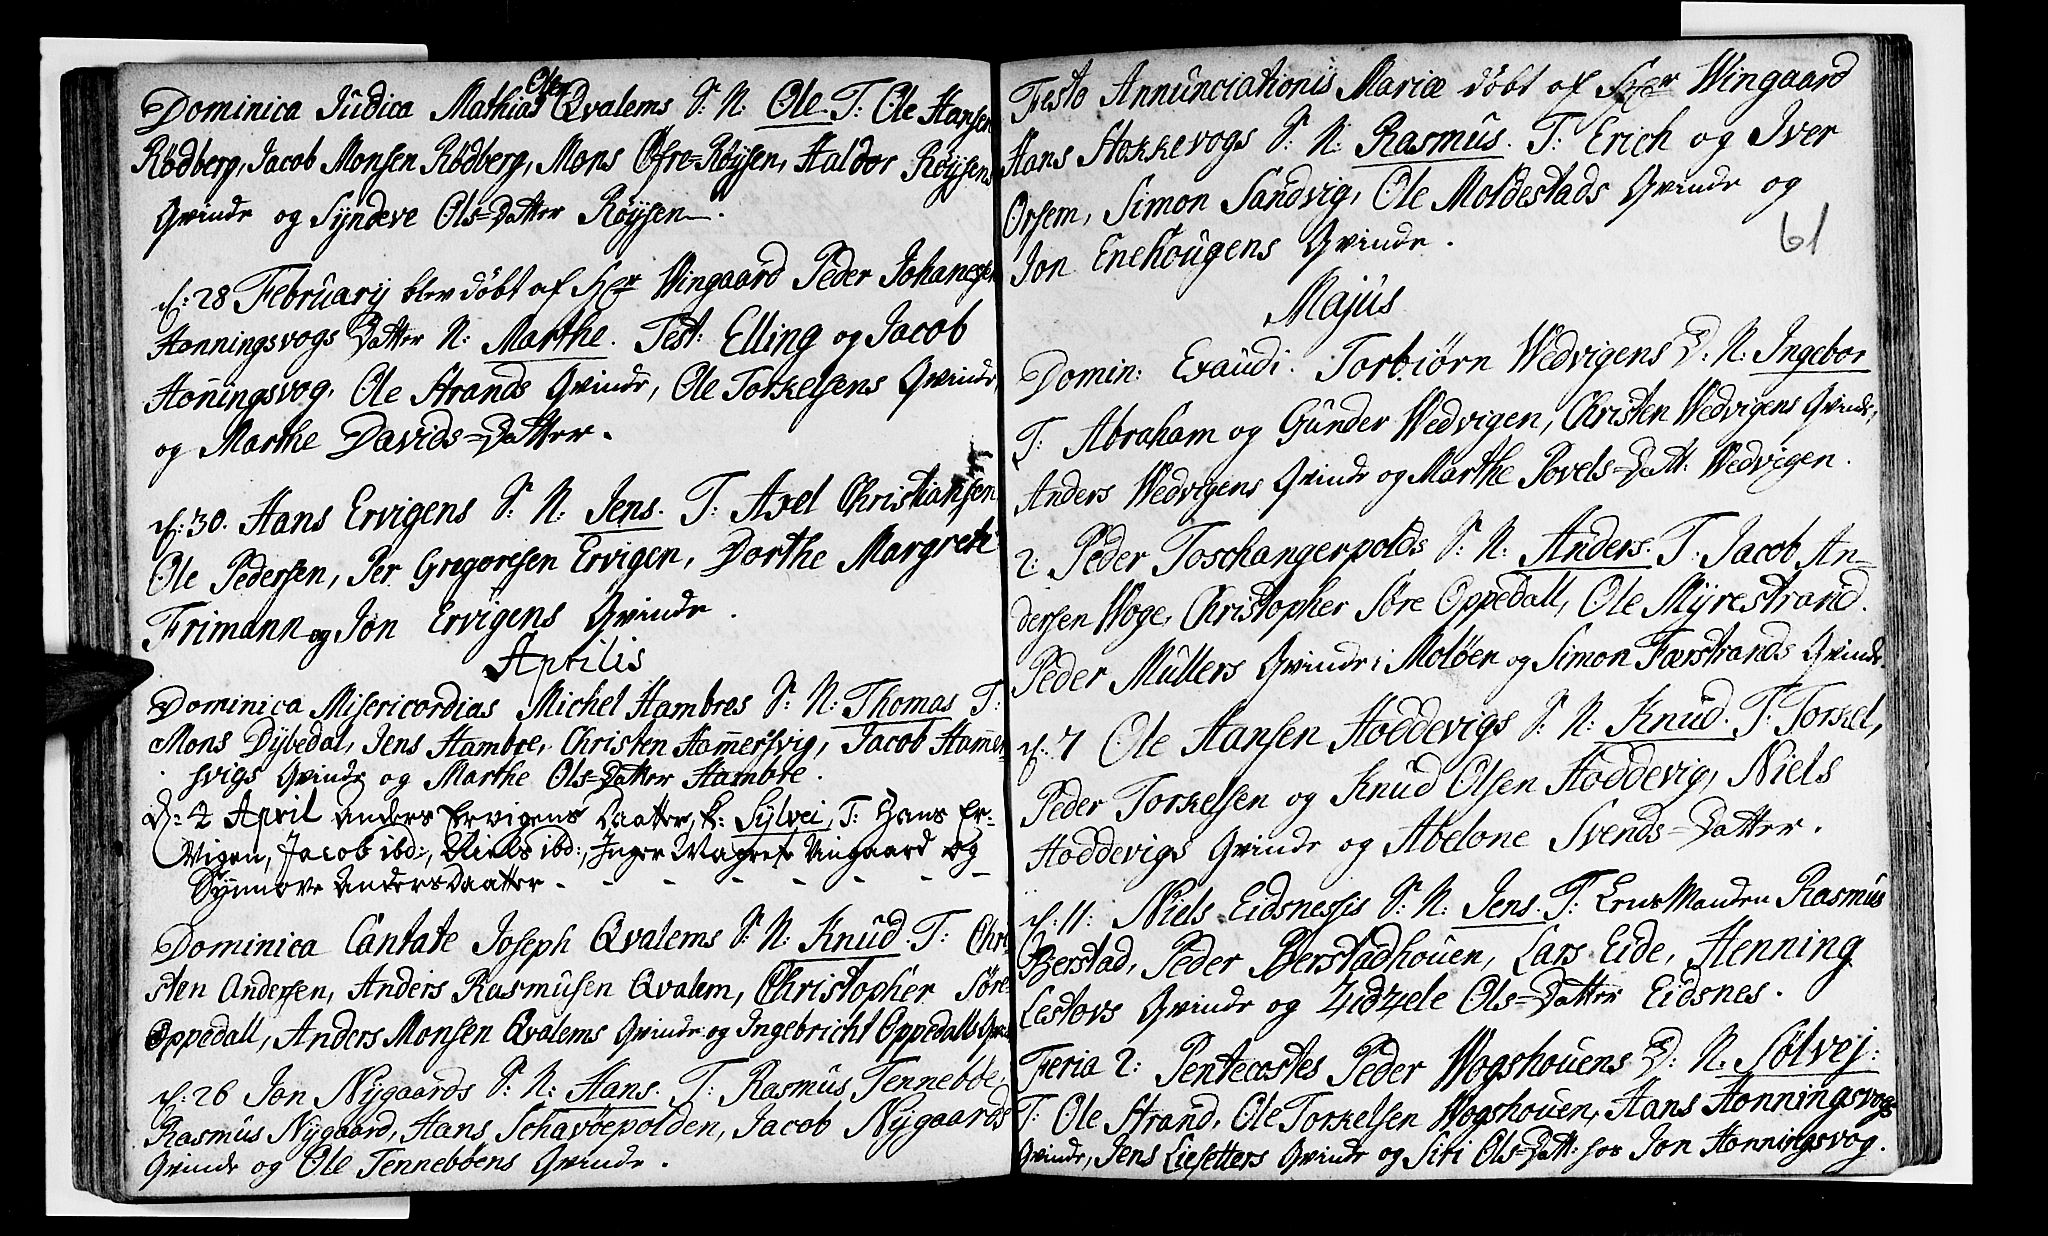 Dominica Judica Mathias Olsen Qvalems S: N: Ole. T: Ole Hansen
Rødberg, Jacob Monsen Rødberg, Mons Øfre=Røysen, Haldor Røysens
Qvinde og Syndeve Ols=Datter Røysen.
d: 28 February blev døbt af Hr Wingaard Peder Johanesen
Honningsvogs Datter N: Marthe. Test: Elling og Jacob
Hoñingsvog, Ole Strands Qvinde, Ole Torkelsens Qvinde,
og Marthe Davids=Datter.
d: 30. Hans Ervigens S: N: Jens. T: Axel Christiansen
Ole Pedersen, Per Gregoresen Ervigen, Dorthe Margrete
Frimann og Jon Ervigens Qvinde.
Aprilis
Dominica Misericordias Michel Hambres S: N: Thomas T:
Mons Dybedal, Jens Hambre, Christen Ham̃ersvig, Jacob Ham̃er
svigs Qvinde og Marthe Ols=Datter Hambre.
D: 4 April Anders Ervigens Daatter, k: Sylvei, T: Hans Er=
vigen, Jacob ibd:, Niels ibd:, Inger Magrete Vingaard og
Synnove Andersdaatter - - - - - - -
Dominica Cantate Joseph Qvalems S: N: Knud. T: Chri
sten Andersen, Anders Rasmusen Qvalem, Christopher Søre
Oppedall, Anders Monsen Qvalems Qvinde og Ingebricht Oppedalls Qvin
d: 26 Jon Nygaards S: N: Hans. T: Rasmus Tenneboe
Rasmus Nygaard, Hans Schavøepolden, Jacob Nygaards
Qvinde og Ole Tennebøens Qvinde.
Festo Annunciationis Mariæ døbt af Hr Wingaard
Hans Stokkevogs S: N: Rasmus. T: Erich og Iver
Orsem, Simon Sandvig, Ole Moldestads Qvinde og
Jon Enehougens Qvinde.
61
Majus
Domin: Exaudi. Torbiørn Wedvigens D: N: Ingebor
T: Abraham og Gunder Wedvigen, Christen Wedvigens Qvinde,
Anders Wedvigens Qvinde og Marthe Povels=Datt: Wedvigen.
2: Peder Toschangerpolds S: N: Anders. T: Jacob An=
dersen Woge, Christopher Søre Oppedall, Ole Myrestrand.
Peder Müllers Qvinde i Moløen og Simon Færstrands Qvinde.
d: 7 Ole Hansen Hoddevigs S: N: Knud. T: Torkel,
Peder Torkelsen og Knud Olsen Hoddevig, Niels
Hoddevigs Qvinde og Abelone Svends=Datter.
d: 11: Niels Eidsnessis S: N: Jens. T: Rasmus
Berstad, Peder Berstadhouen, Lars Eide, Henning
Lestovs Qvinde og Zidzele Ols=Datter Eidsnes.
Feria 2: Pentecostes Peder Wogshouens D: N: Sølvej:
T: Ole Strand, Ole Torkelsen Wogshouen, Hans Honningsvogs
Qvinde, Jens Liesetters Qvinde og Siri Ols=Datt: hos Jon Honningsvog.